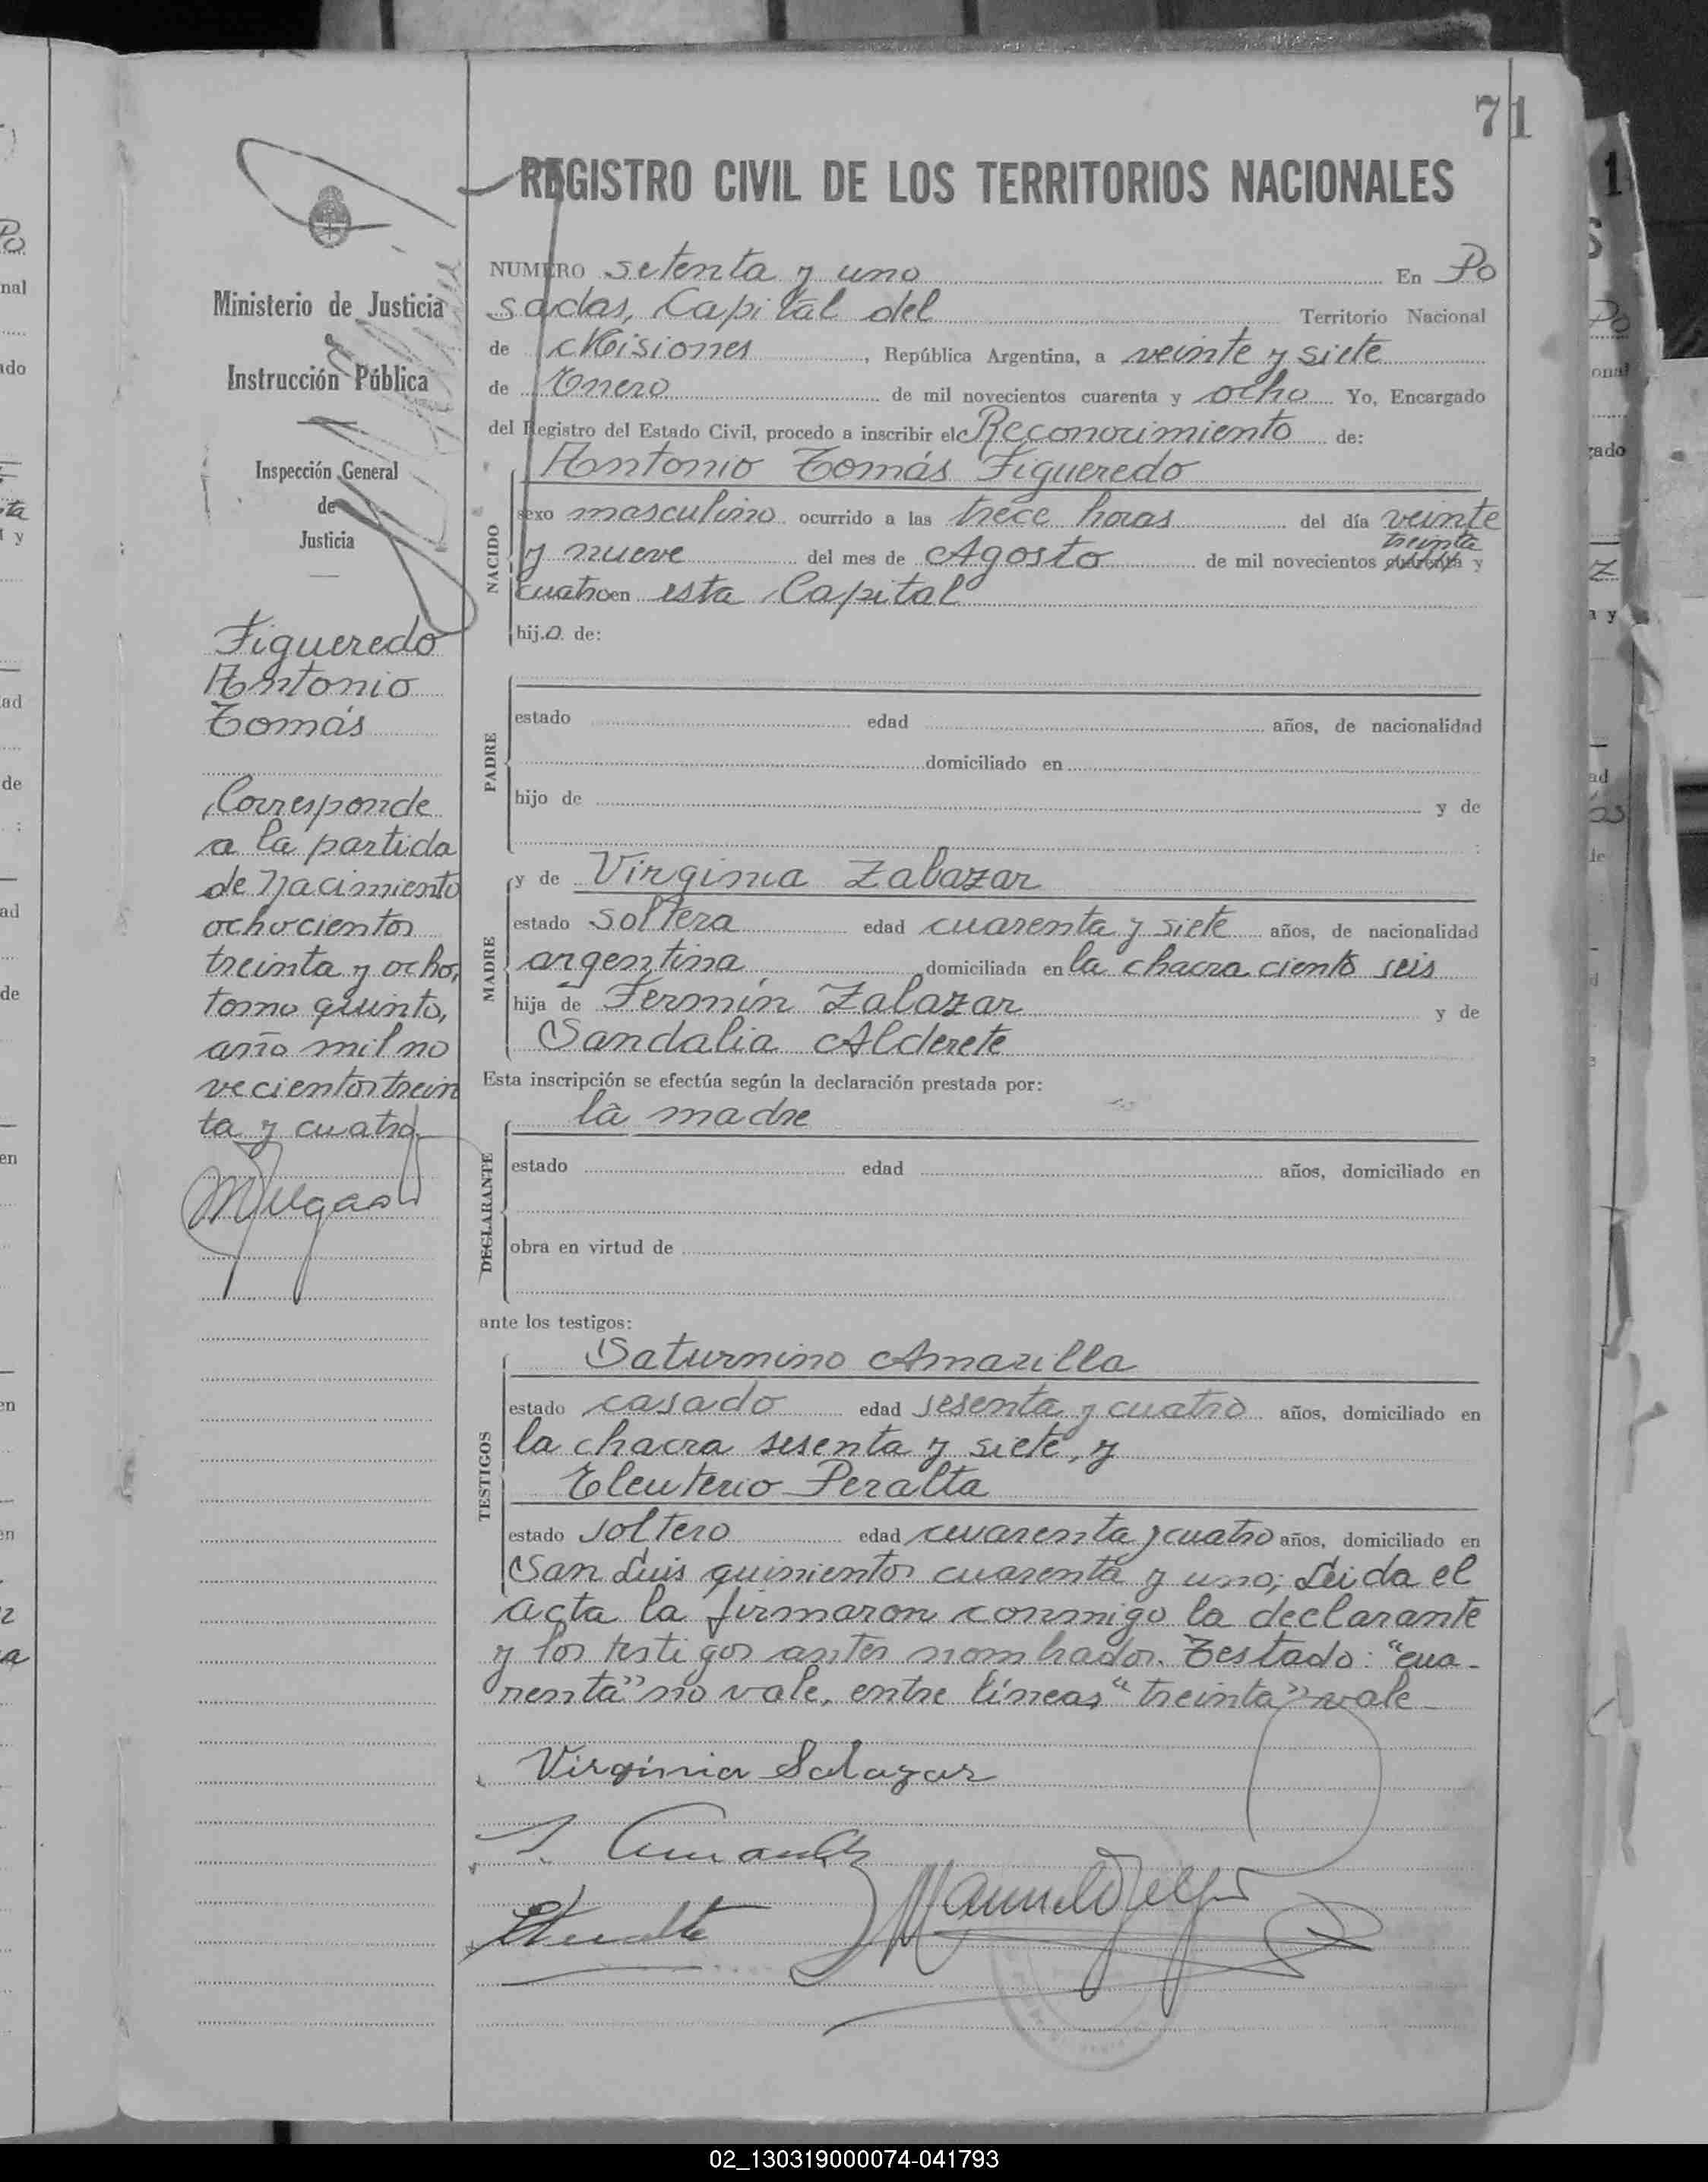 71
REGISTRO CIVIL DE LOS TERRITORIOS NACIONALES
Ministerio de Justicia
e
Instrucción Pública
Inspección General
de
Justicia
Figueredo
Antonio
Tomás
Corresponde
a la partida
de nacimiento
ochocientos
treinta y ocho,
tomo quinto,
año mil no
vecientos trein
ta y cuatro
NUMERO setenta y uno En Po
sadas, Capital del Territorio Nacional
de Misiones, República Argentina, a veinte y siete
de Enero de mil novecientos cuarenta y ocho Yo, Encargado
del Registro del Estado Civil, procedo a inscribir el Reconocimiento de:
NACIDO
Antonio Tomás Figueredo
sexo masculino ocurrido a las trece horas del día veinte
y nueve del mes de Agosto de mil novecientos cuarenta treinta y
cuatro en esta Capital
hijo de:
PADRE
estado edad años, de nacionalidad
domiciliado en
hijo de y de
:
MADRE
y de Virginia Zalazar
estado soltera edad cuarenta y siete años, de nacionalidad
argentina domiciliada en la chacra ciento seis
hija de Fermín Zalazar y de
Sandalia Alderete
Esta inscripción se efectúa según la declaración prestada por:
DECLARANTE
la madre
estado edad años, domiciliado en
obra en virtud de
ante los testigos:
TESTIGOS
Saturnino Amarilla
estado casado edad sesenta y cuatro años, domiciliado en
la chacra sesenta y siete, y
Eleuterio Peralta
estado soltero edad cuarenta y cuatro años, domiciliado en
San Luis quinientos cuarenta y uno; Leida el
acta la firmaron conmigo la declarante
y los testigos antes nombrados. Testado: "cua-
renta" no vale, entre líneas "treinta" vale
Virginia Salazar
02_130319000074-041793